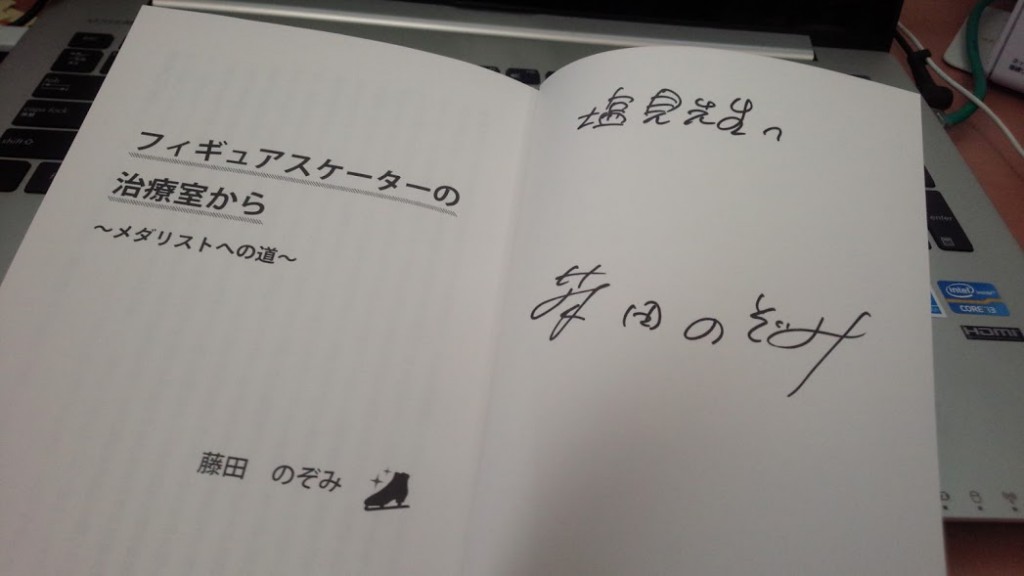 フィギュアスケーターの
治療室から
～メダリストへの道～
藤田 のぞみ
塩見先生へ
藤田のぞみ
shift
enter
intel
CORE i3
HDMI